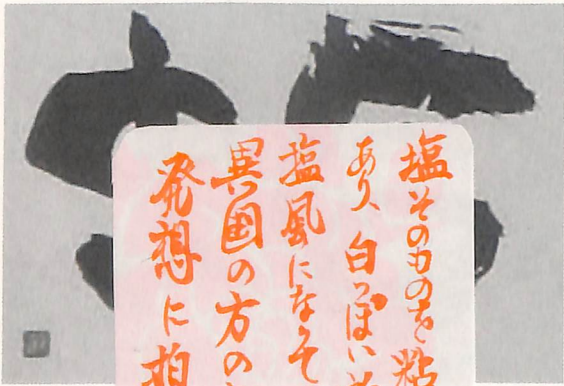 塩そのものを粘
あり、白っぽい
塩風になって
異国の方の
発想に拍